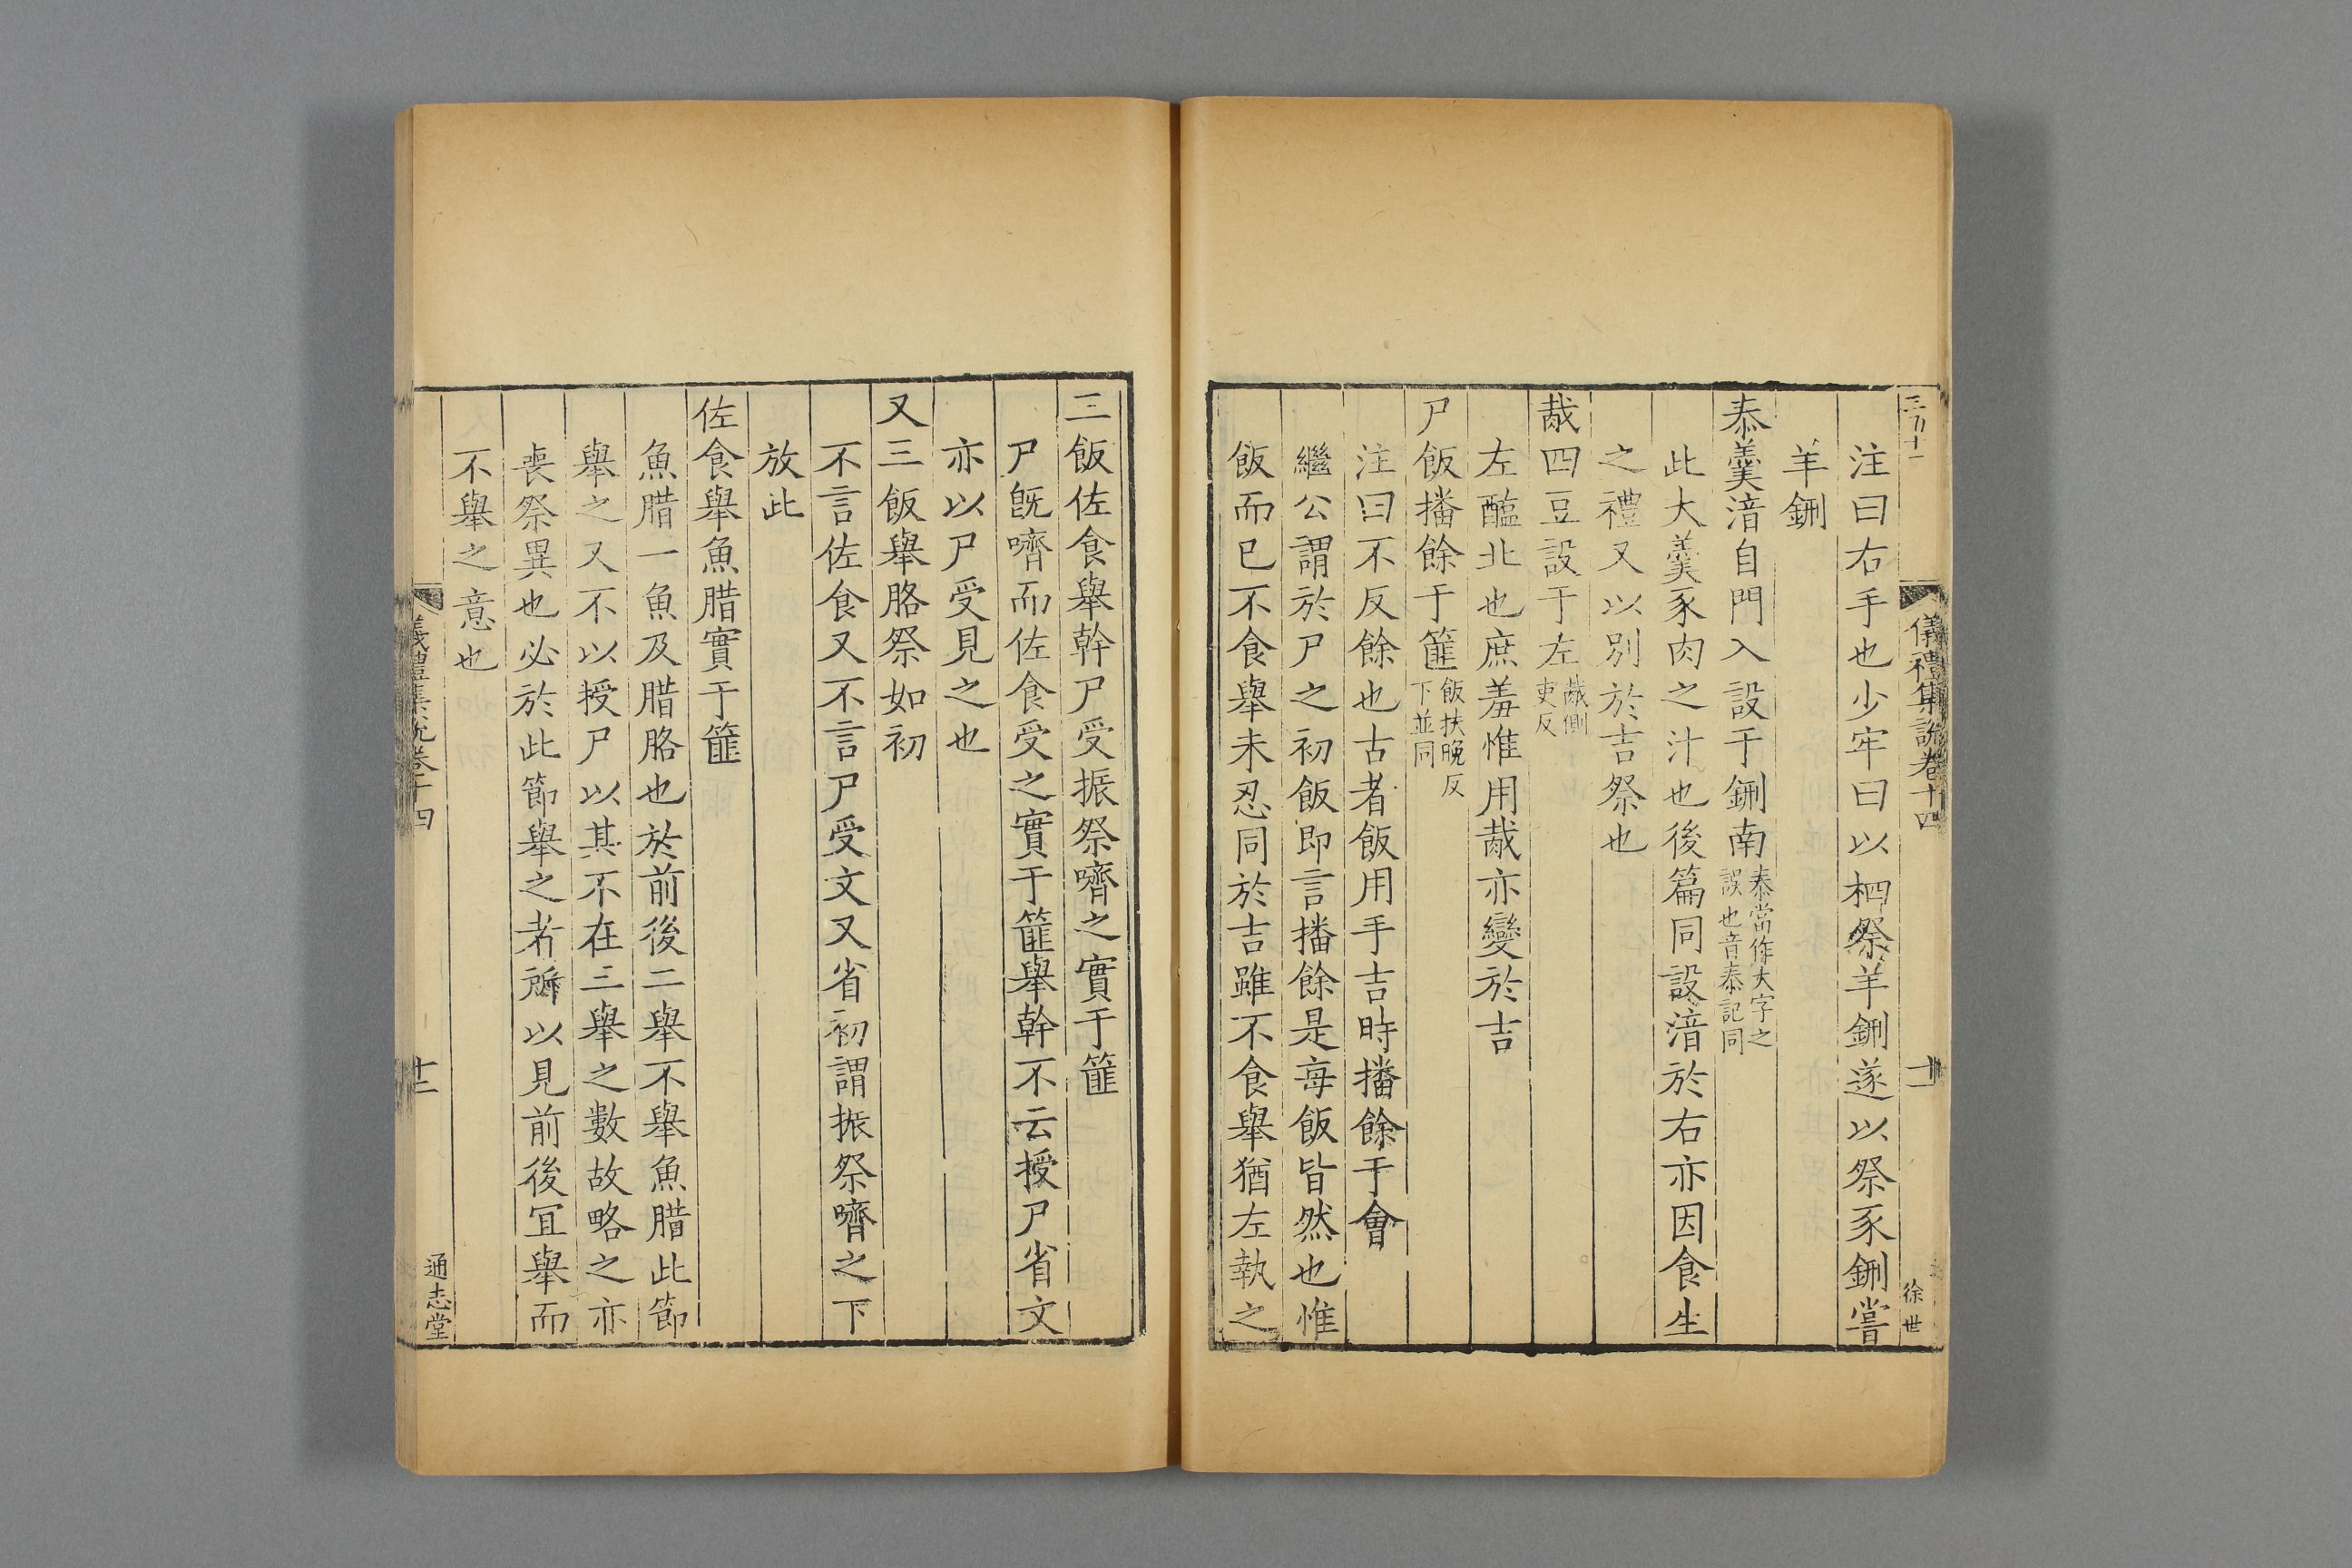 儀禮集說卷十四
十一
徐世
注曰右手也少牢曰以柶祭羊鉶遂以祭豕鉶嘗
羊鉶
泰羹湆自門入設于鉶南泰當作大字之誤也音泰記同
此大羹豕肉之汁也後篇同設湆於右亦因食生
之禮又以別於吉祭也
胾四豆設于左胾側吏反
左醢北也庶羞惟用胾亦變於吉
尸飯播餘于篚飯扶晚反下並同
注曰不反餘也古者飯用手吉時播餘于會
繼公謂於尸之初飯即言播餘是每飯皆然也惟
飯而已不食舉未忍同於吉雖不食舉猶左執之
三飯佐食舉幹尸受振祭嚌之實于篚
尸旣嚌而佐食受之實于篚舉幹不云授尸省文
亦以尸受見之也
又三飯舉胳祭如初
不言佐食又不言尸受文又省初謂振祭嚌之下
放此
佐食舉魚腊實于篚
魚腊一魚及腊胳也於前後二舉不舉魚腊此節
舉之又不以授尸以其不在三舉之數故略之亦
喪祭異也必於此節舉之者所以見前後宜舉而
不舉之意也
儀禮集說卷十四
十二
通志堂